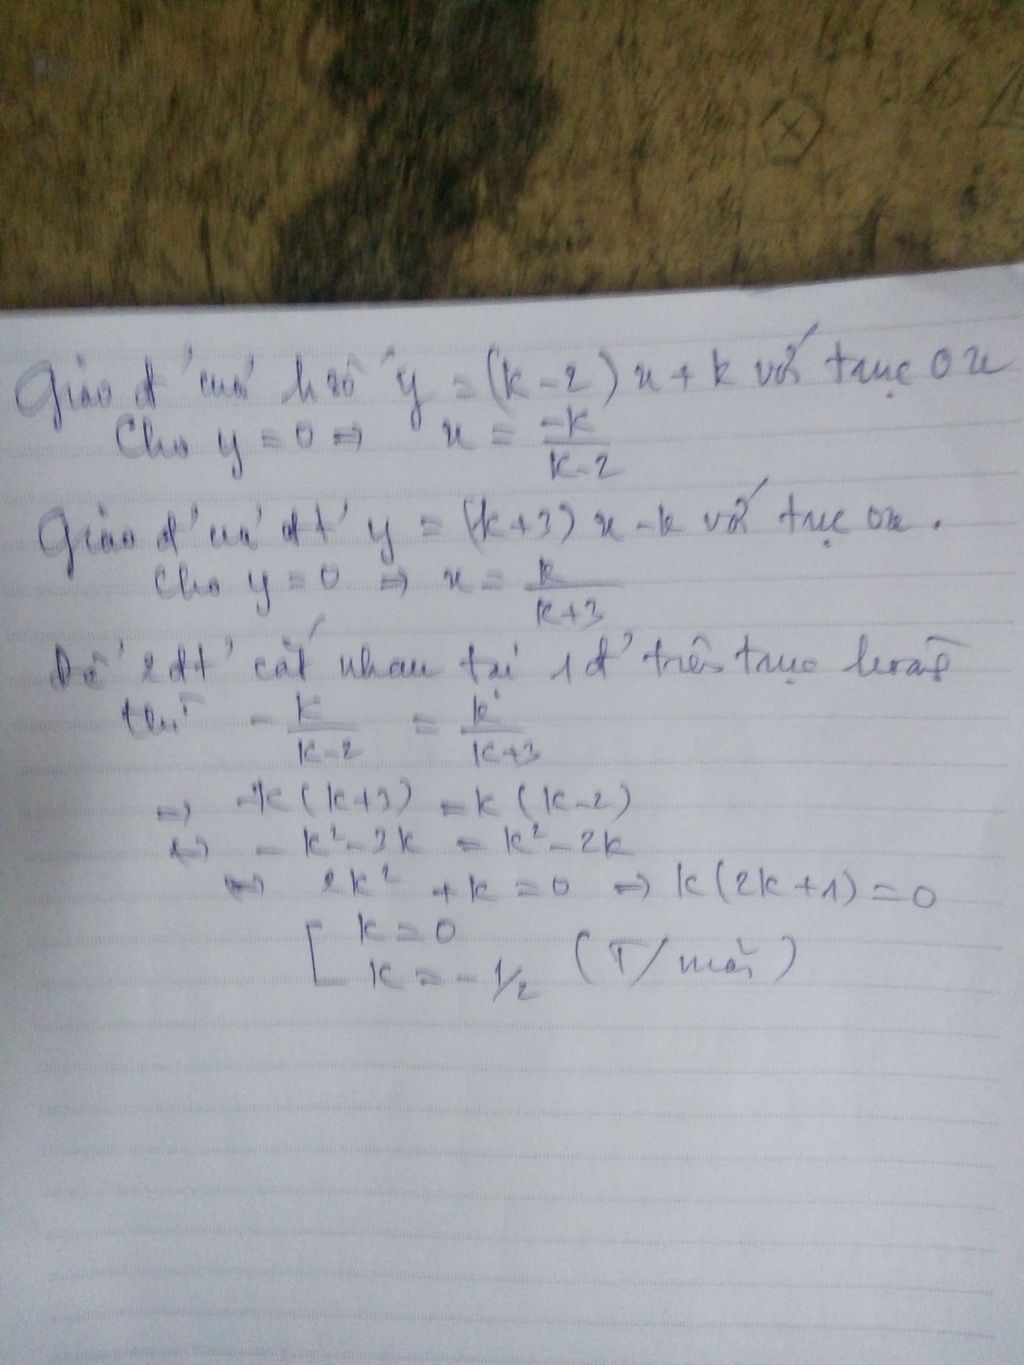 Giao đ' của h số y = (k-2)x + k với trục Ox
Cho y = 0 => x = -k/k-2
Giao đ' của đt' y = (k+3)x - k với trục Ox.
Cho y = 0 => x = k/k+3
Để 2 đt' cắt nhau tại 1 đ' trên trục hoành
thì -k/k-2 = k/k+3
=> -k(k+3) = k(k-2)
<=> -k²-3k = k²-2k
<=> 2k² + k = 0 => k(2k+1) = 0
[ k = 0
k = -1/2 (T/mãn)